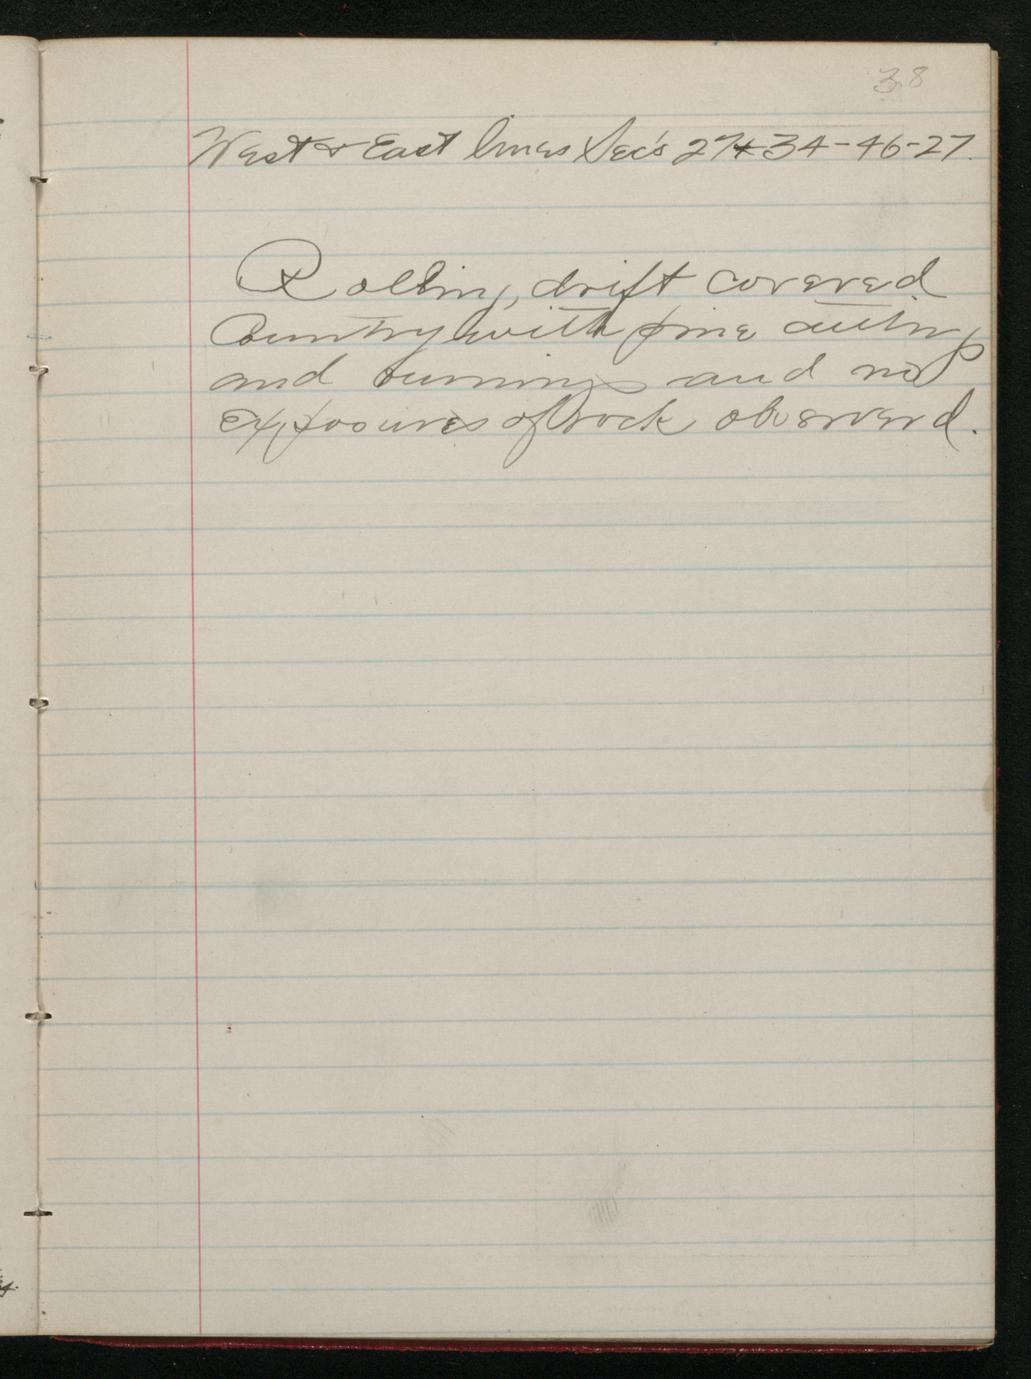 38
West & East lines Sec's 27+34-46-27.
Rolling, drift covered
Country with pine cuting
and burnings and no
exposures of rock observed.